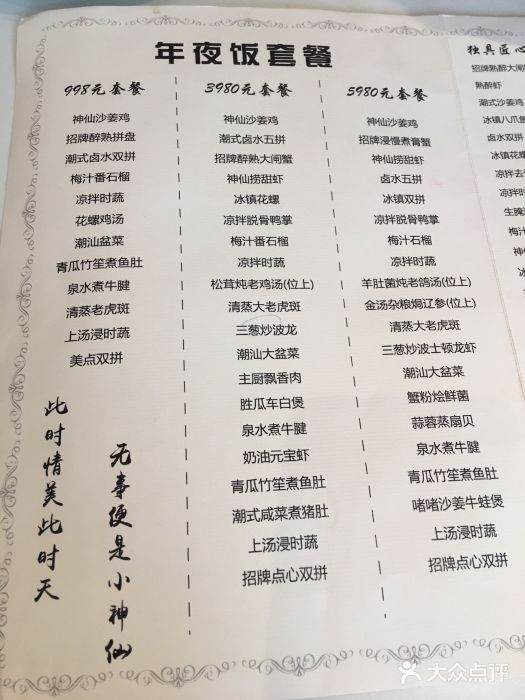 年夜饭套餐
998元套餐
神仙沙姜鸡
招牌醉熟拼盘
潮式卤水双拼
梅汁番石榴
凉拌时蔬
花螺鸡汤
潮汕盆菜
青瓜竹笙煮鱼肚
泉水煮牛腱
清蒸老虎斑
上汤浸时蔬
美点双拼
3980元套餐
神仙沙姜鸡
潮式卤水五拼
招牌醉熟大闸蟹
神仙捞甜虾
冰镇花螺
凉拌脱骨鸭掌
梅汁番石榴
凉拌时蔬
松茸炖老鸡汤(位上)
清蒸大老虎斑
三葱炒波龙
潮汕大盆菜
主厨飘香肉
胜瓜车白煲
泉水煮牛腱
奶油元宝虾
青瓜竹笙煮鱼肚
潮式咸菜煮猪肚
上汤浸时蔬
招牌点心双拼
5980元套餐
神仙沙姜鸡
招牌浸慢煮膏蟹
神仙捞甜虾
卤水五拼
冰镇双拼
凉拌脱骨鸭掌
梅汁石榴
凉拌时蔬
羊肚菌炖老鸽汤(位上)
金汤杂粮焗辽参(位上)
清蒸大老虎斑
三葱炒波士顿龙虾
潮汕大盆菜
蟹粉烩鲜菌
蒜蓉蒸扇贝
泉水煮牛腱
青瓜竹笙煮鱼肚
啫啫沙姜牛蛙煲
上汤浸时蔬
招牌点心双拼
独具匠心
招牌熟醉大闸
熟醉虾
潮式沙姜
冰镇八爪
卤水双拼
冰镇花
凉拌去
凉拌时
生腌
潮汕
神
此时情美此时天
无事便是小神仙
大众点评